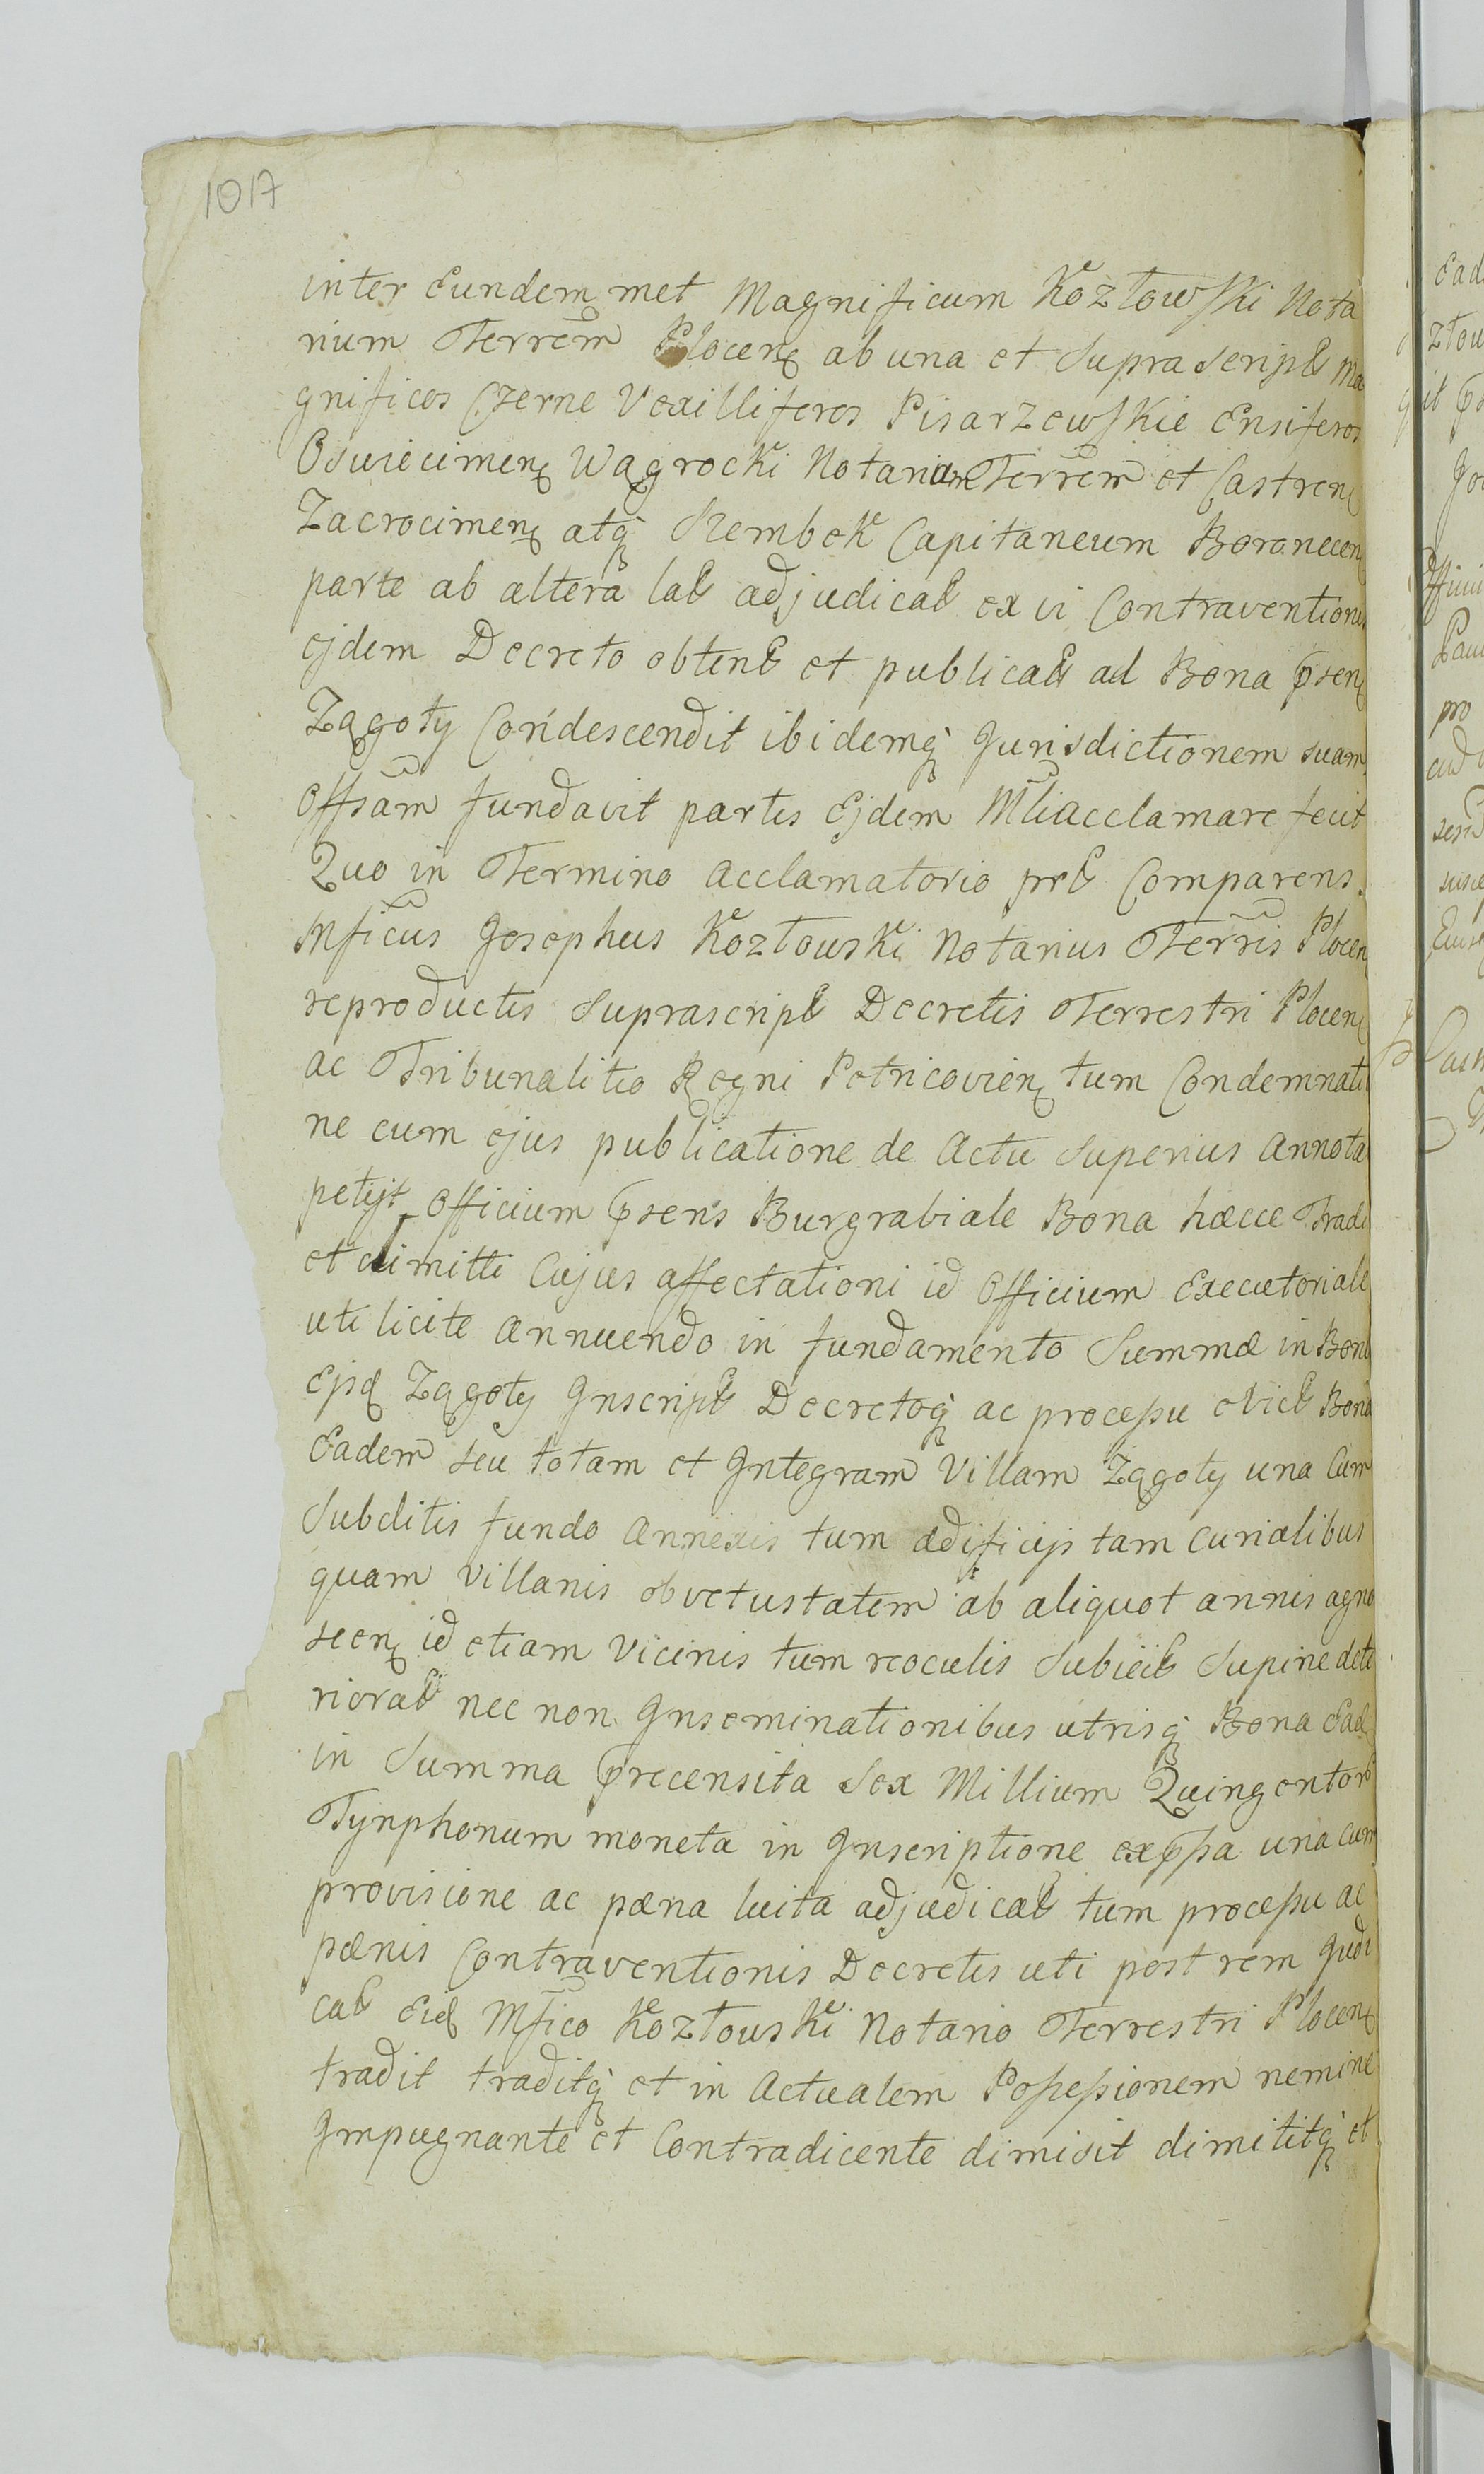 1017
inter Eundem met Magnificum Kozłowski Nota
rium Terrem̃ Plocen̄ ab una et Suprascript Ma
gnificos Czerne Vexilliferos Pisarzewskie Ensiferos
Oswiecimen̄ Wągrocki Notarium Terrem̃ et Castren̄
Zacrocimen̄ atq̨ Szembek Capitaneum Boronecen̄
parte ab altera lat adjudicat ex vi Contraventionis
ejdem Decreto obtent et publicat ad Bona p̄sen̄
Zągoty Condescendit ibidemq̨ Jurisdictionem suam
Offsam̃ fundavit partes Ejdem Mti acclamare fecit
Quo in Termino acclamatorio prt Comparens.
Mficus Josephus Kozłouski Notarius Terris̃ Plocen̄
reproductis Suprascript Decretis Terrestri Plocen̄
ac Tribunalitio Regni Petricovien̄ tum Condemnatio
ne cum ejus publicatione de Actu Superius Annota
petijt Officium p̄sens Burgrabiale Bona hæcce Tradi
et dimitti Cujus affectationi id Officium Executoriale
uti licite Annuendo in fundamento Summæ in Bon̄
Ejsd Zągoty Inscript Decretoq̨ ac processu evict Bona
Eadem seu totam et Integram Villam Zągoty una Cum
Subditis fundo Annexis tum ædificijs tam curialibus
quam Villanis ob vetustatem ab aliquot annis agno
scen̄ id etiam Vicinis tum reoculis Subiect Supine dete
riorat nec non Inseminationibus utrisq̨ Bona Ead
in Summa p̄recensita Sex Millium Quingentor
Tynphonum moneta in Inscriptione exp̄ssa una cum
provisione ac pæna luita adjudicat tum processu ac
pænis Contraventionis Decretis uti post rem Judi
cat Eid Mfico Kozłouski Notario Terrestri Plocen̄
tradit traditq̨ et in Actualem Possessionem nemine
Impugnante et Contradicente dimisit dimititq̨ et